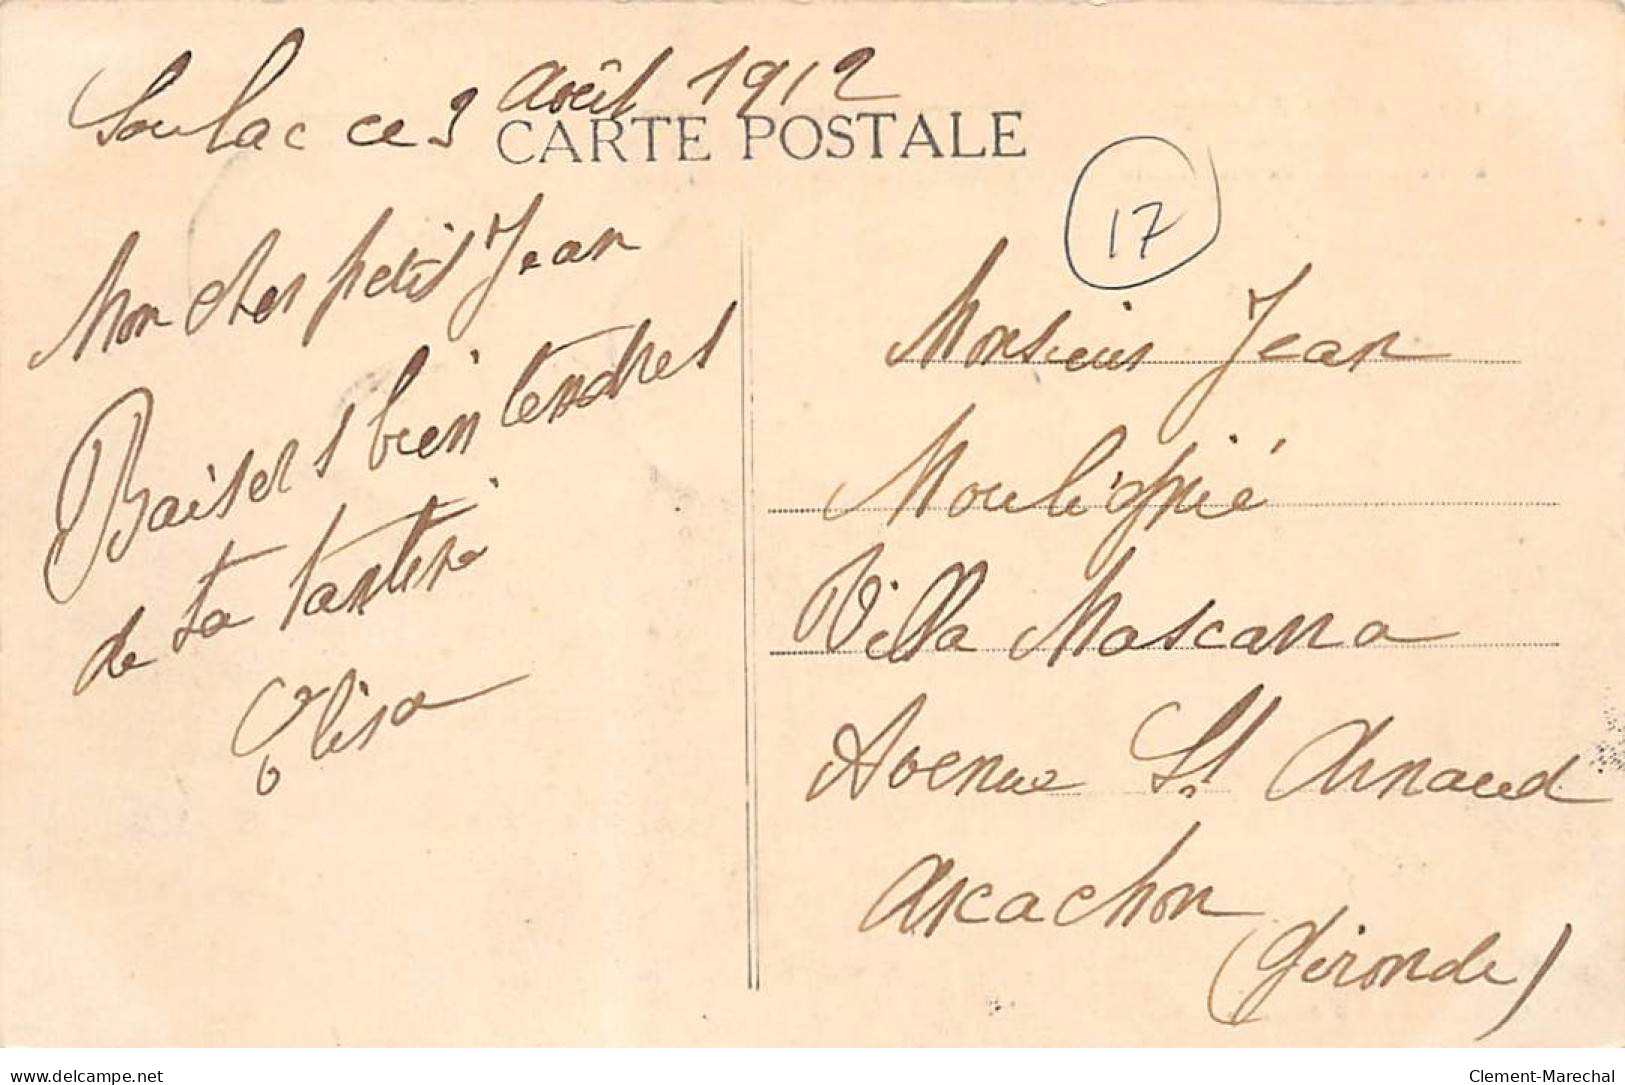 Soulac ce 3 Août 1912
CARTE POSTALE
17
Mon cher petit Jean
Baisers bien tendres
de ta tantine
Elisa
Monsieur Jean
Moulignié
Villa Mascana
Avenue St Arnaud
Arcachon
(Gironde)
www.delcampe.net
Clement-Marechal